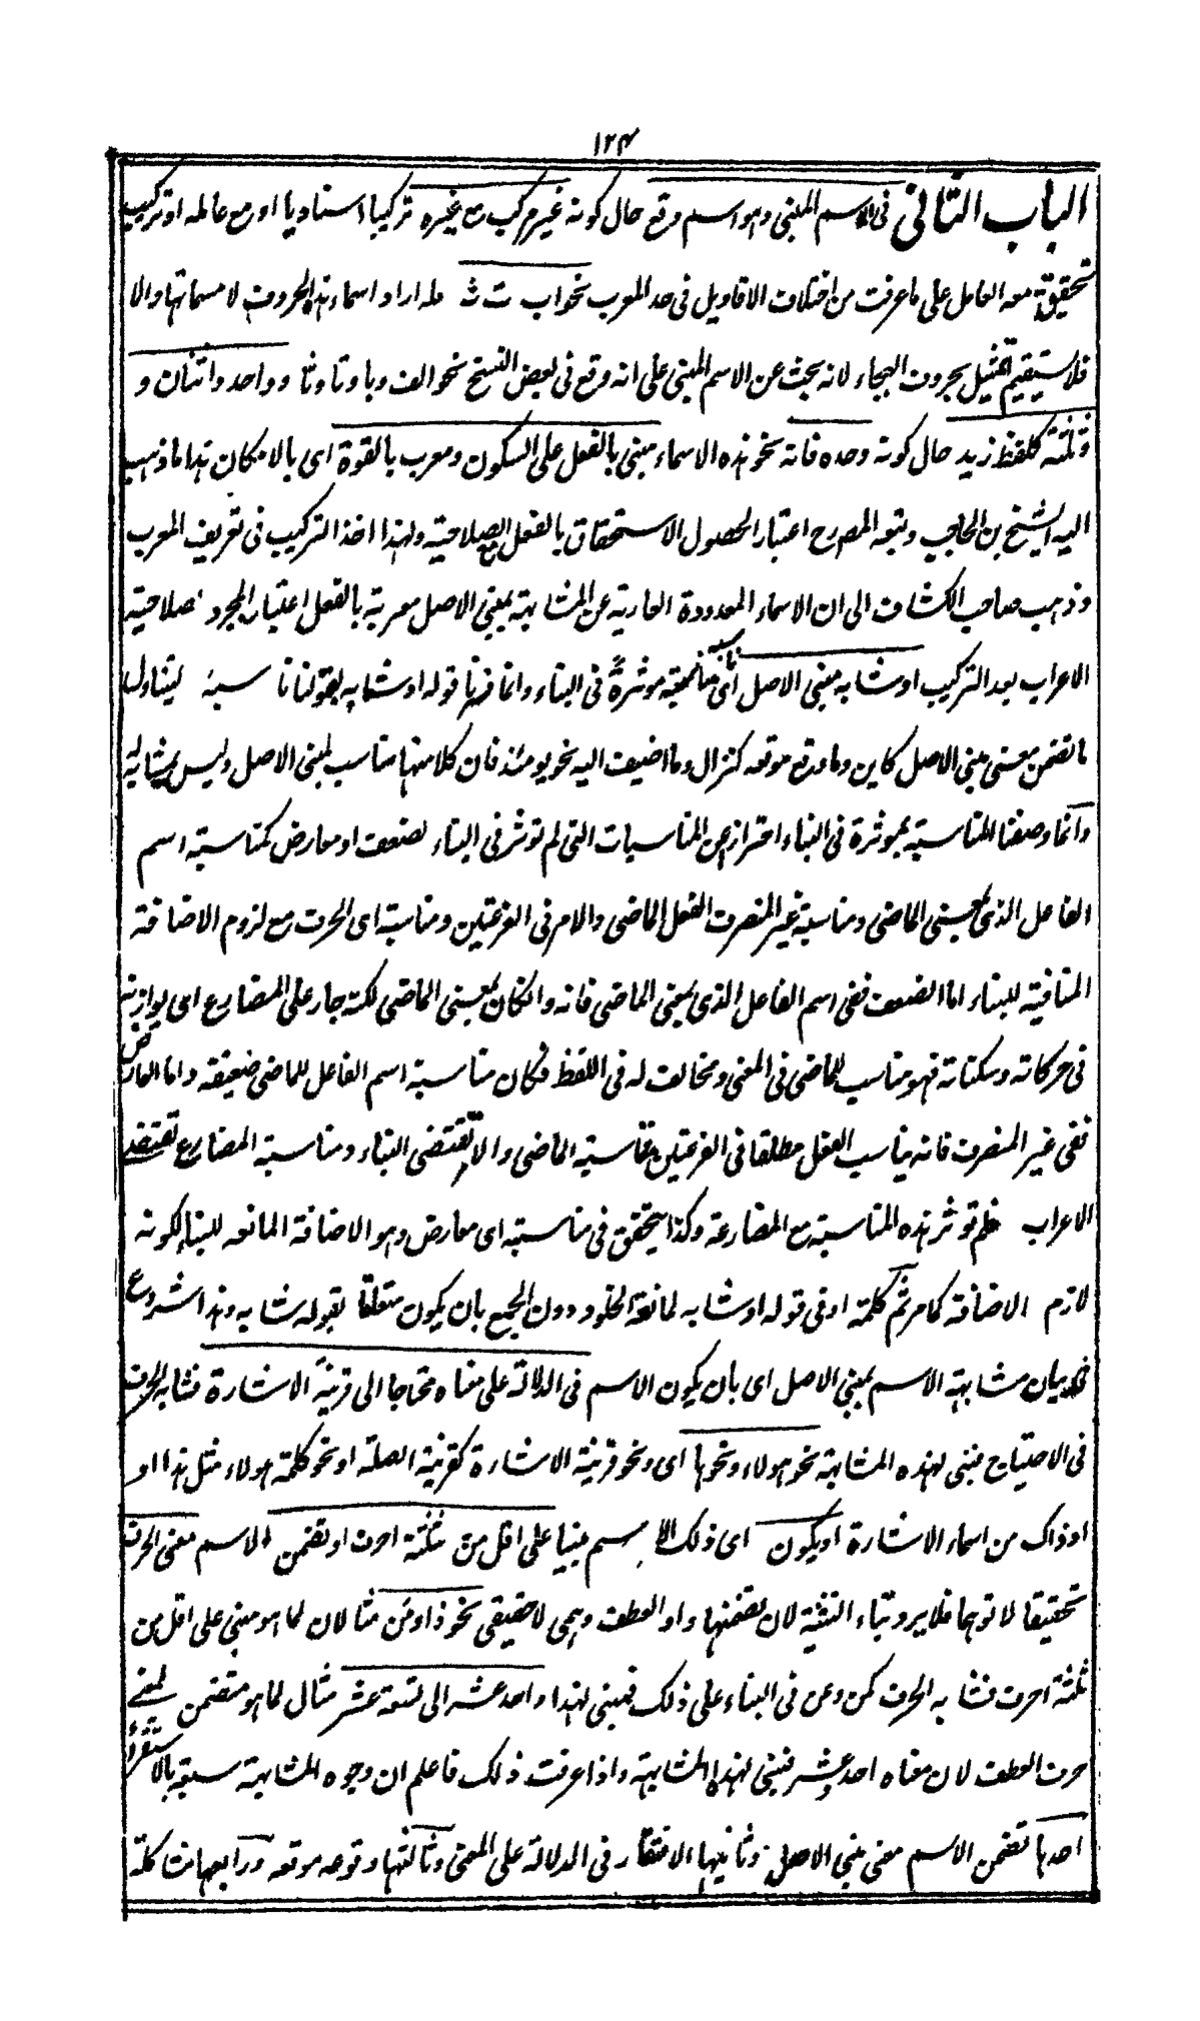 ١٢٤
الباب الثانی فی الاسم المبنی وهو اسم وقع حال کونه غیر مرکب مع غیره ترکیبا اسنادیا او مع عامله او ترکیب
تحقیقیة معه العامل علی ما عرفت من اختلاف الاقاویل فی حد المعرب نحو اب ت ث مه اراد اسماء هذه الحروف لا مسماتها والا
فلا یستقیم تمثیل بحروف الهجاء لانه یبحث عن الاسم المبنی علی انه وقع فی بعض النسخ نحو الف وبا وتا وثا وواحد واثنان و
وثلثة کلفظ زید حال کونه وحده فانه نحو هذه الاسماء مبنی بالفعل علی السکون ومعرب بالقوة ای بالامکان هذا ما ذهب
الیه الشیخ بن الحاجب وتبعه المصرح اعتبار الحصول الاستحقاق بالفعل مع الصلاحیة ولهذا اخذ الترکیب فی تعریف المعرب
وذهب صاحب الکشاف الی ان الاسماء المعدودة العاریة عن المشابهة بمبنی الاصل معربة بالفعل اعتبار المجرد صلاحیته
الاعراب بعد الترکیب او شابه مبنی الاصل ای مناسبة موثرةً فی البناء وانما فسرنا قوله او شابه بقولنا ناسبه لیتناول
ما تضمن معنی مبنی الاصل کاین وما وقع موقعه کنزال وما اضیف الیه نحو یومئذ فان کلا منها مناسب لمبنی الاصل ولیس بمشابه له
وانما وصفنا المناسبة بموثرة فی البناء احتراز عن المناسبات التی لم توثر فی البناء لضعف او معارض کمناسبة اسم
الفاعل الذی بمعنی الماضی ومناسبة غیر المنصرف الفعل الماضی والامر فی الفرعیتین ومناسبة ای الحرف مع لزوم الاضافة
المنافیة للبناء اما الضعف ففی اسم الفاعل الذی بمعنی الماضی فانه وانکان بمعنی الماضی لکنه جار علی المضارع ای یوازنه
فی حرکاته وسکناته فهو مناسب للماضی فی المعنی ومخالف له فی اللفظ فکان مناسبة اسم الفاعل للماضی ضعیفة واما المعارض
ففی غیر المنصرف فانه یناسب الفعل مطلقا فی الفرعیتین فمناسبة الماضی والامر تقتضی البناء ومناسبة المضارع تقتضی
الاعراب فلم توثر هذه المناسبة مع المضارعة وکذا یتحقق فی مناسبة ای معارض وهو الاضافة المانعه للبناء لکونه
لازم الاضافة کما مر ثم کلمة او فی قوله او شابه لمانعة الخلو دون الجمع بان یکون متعلقا بقوله شابه وهذا شروع
فی بیان مشابهة الاسم بمبنی الاصل ای بان یکون الاسم فی الدلالة علی معناه محتاجا الی قرینةً الاشارة فشابه الحرف
فی الاحتیاج فبنی لهذه المشابهة نحو هولاء ونحوها ای ونحو قرینة الاشارة کقرینة الصلة او نحو کلمة هولاء مثل هذا او
او ذاک من اسماء الاشارة او یکون ای ذلک الاسم مبنیا علی اقل من ثلثة احرف او تضمن الاسم معنی الحرف
تحقیقا لا توهما فلا یرد بناء التثنیة لان تضمنها واو العطف وهمی لا حقیقی نحو ذا ومن مثالان لما هو مبنی علی اقل من
ثلثة احرف فشابه الحرف کمن وعن فی البناء علی ذلک فبنی لهذا واحد عشر الی تسعة عشر مثال لما هو متضمن لمعنی
حرف العطف لان معناه احد وعشر فبنی لهذه المشابهة واذا عرفت ذلک فاعلم ان وجوه المشابهة سبعة بالاستقراء
احدها تضمن الاسم معنی مبنی الاصل وثانیها الافتقار فی الدلالة علی المعنی وثالثها وقوعه موقعه ورابعها مشاکلة